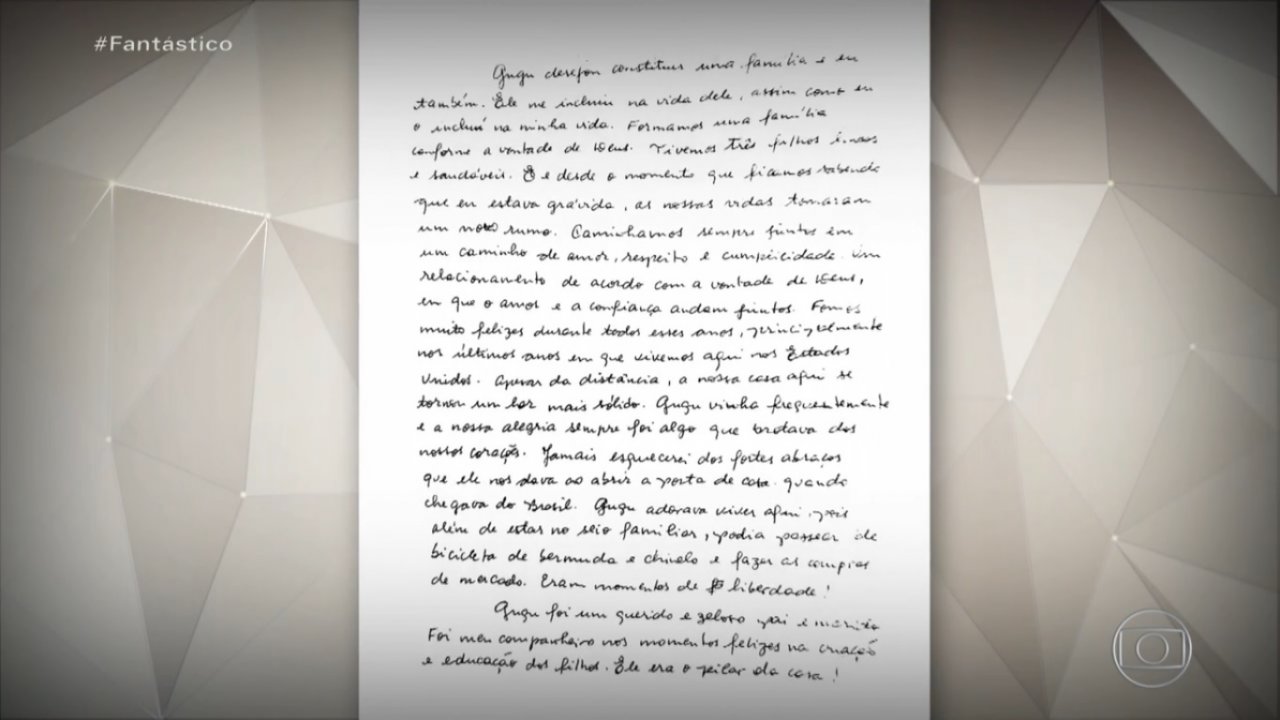 #Fantástico
Gugu desejou constituir uma família e eu
também. Ele me incluiu na vida dele, assim como eu
o incluí na minha vida. Formamos uma família
conforme a vontade de Deus. Tivemos três filhos lindos
e saudáveis. E desde o momento que ficamos sabendo
que eu estava grávida, as nossas vidas tomaram
um novo rumo. Caminhamos sempre juntos em
um caminho de amor, respeito e cumplicidade. Um
relacionamento de acordo com a vontade de Deus,
em que o amor e a confiança andam juntos. Fomos
muito felizes durante todos esses anos, principalmente
nos últimos anos em que vivemos aqui nos Estados
Unidos. Apesar da distância, a nossa casa aqui se
tornou um lar mais sólido. Gugu vinha frequentemente
e a nossa alegria sempre foi algo que brotava dos
nossos corações. Jamais esquecerei dos fortes abraços
que ele nos dava ao abrir a porta de casa quando
chegava do Brasil. Gugu adorava viver aqui, pois
além de estar no seio familiar, podia passear de
bicicleta de bermuda e chinelo e fazer as compras
de mercado. Eram momentos de liberdade!
Gugu foi um querido e zeloso pai e marido
Foi meu companheiro nos momentos felizes na criação
e educação dos filhos. Ele era o pilar da casa!